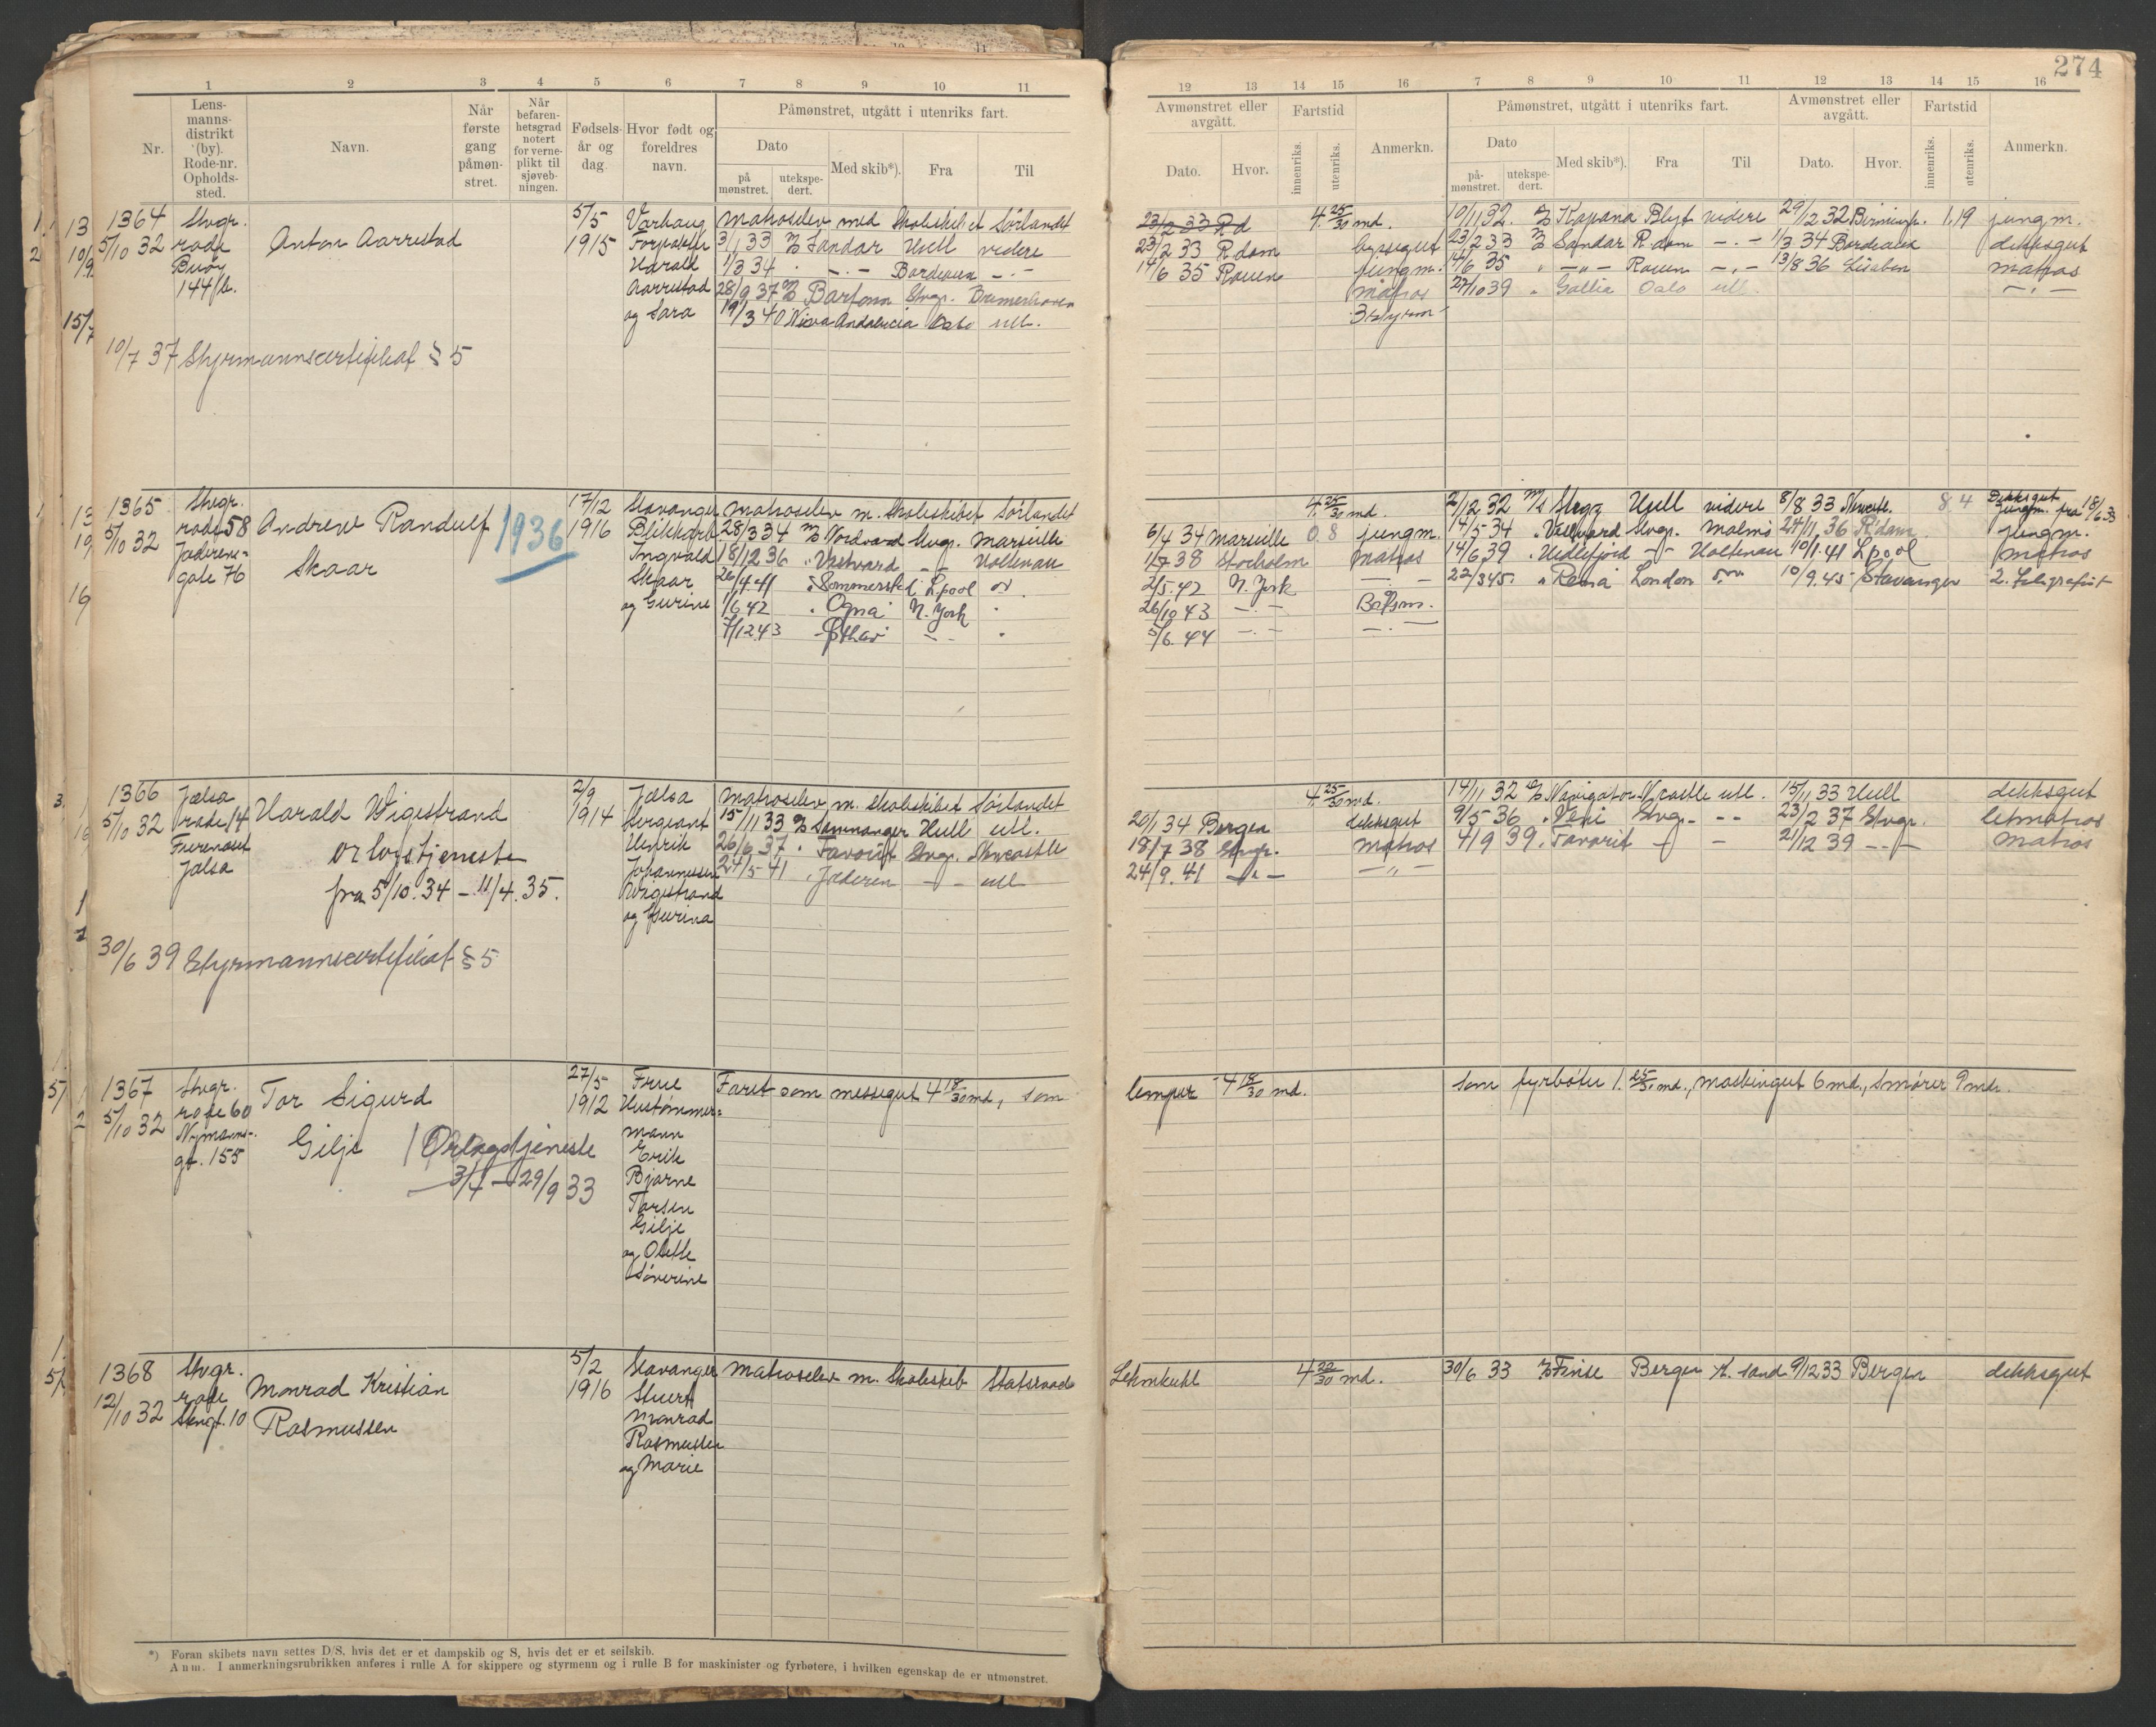 274
1 2 3 4 5 6 7 8 9 10 11
Nr.
Lens-
manns-
distrikt
(by).
Rode-nr.
Opholds-
sted.
Navn.
Når
første
gang
påmøn-
stret.
Når
befaren-
hetsgrad
notert
for verne-
plikt til
sjøveb-
ningen.
Fødsels-
år og
dag.
Hvor født og
foreldres
navn.
Påmønstret, utgått i utenriks fart.
Dato
på
mønstret.
utekspe-
dert.
Med skib*).
Fra
Til
12 13 14 15 16 7 8 9 10 11 12 13 14 15 16
Avmønstret eller
avgått.
Dato.
Hvor.
Fartstid
innenriks.
utenriks.
Anmerkn.
Påmønstret, utgått i utenriks fart.
Dato
på-
mønstret.
utekspe-
dert.
Med skib*).
Fra
Til
Avmønstret eller
avgått.
Dato.
Hvor.
Fartstid
innenriks.
utenriks.
Anmerkn.
1364
5/10 32
Stvgr.
rode
Buøy
144 b.
Anton Aarrestad
5/5
1915
Varhaug
Forpakter
Harald
Aarrestad
og Sara
Matroselev med Skoleskibet Sørlandet
3/1 33 Sandar Hull videre
1/3 34 " -"- Bordeaux -"-
28/9 37 Bartonn Stvgr. Bremerhaven
19/3 40 Nova Andalucia Oslo utl.
10/7 37 Styrmannscertifikat § 5
23/2 33 Rd 4 25/30 md.
23/2 33 R.dam byssegut
14/6 35 Rouen jungm.
matros
3 styrm
10/11 32. Kapana Blyt videre 29/12 32 1,19 jungm.
23/2 33 Sandar R.dam -"- 1/3 34 Bordeaux dekksgut
14/6 35 " -"- Rouen -"- 13/8 36 Lisabon matros
27/10 39 " Gallia Oslo utl. -"-
1365
5/10 32
Stvgr.
rode 58
Jæderens-
gate 76
Andrew Randulf
Skaar
1936
17/12
1916
Stavanger
Blikkarb.
Ingvald
Skaar
og Gurine
Matroselev m. Skoleskibet Sørlandet
28/3 34 Nordvard Stvgr. Marseille
18/12 36 " Vestvard -"- Holtenau
26/4.41 " Sommerstad L.pool
1/6 42 " Ogna N. York "
7/12.43 -"- "
4. 25/30 md.
6/4 34 Marseille 0.8 jungm.
1/7 38 Stocholm Matros
2/5.42 N. York -"-
26/10 43 -"- Båtsm.
5/6. 44 -"- -"-
2/12 32 M/s Hull videre 8/8 33 Newcstle. 8 4 Dekksgut
jungm. fra 18/6.33
14/5 34 " Vallvard Stvgr. Malmø 24/11 36 R'dam jungm.
14/6 39 " Hidlefjord -"- Holtenau 10/1.41 L.pool matros
22/3 45. " Rena London 10/9.45 Stavanger 2. Telegrafist
1366
5/10 32
Jælsa
rode 14
Jælsa
Harald Wigestrand
Orlogstjeneste
fra 5/10.34 - 11/4.35.
30/6 39 Styrmannscertifikat § 5
2/9
1914
Jælsa
Sergeant
Henrik
Johannessen
Wigestrand
og Gurina
Matroselev m. Skoleskibet Sørlandet
15/11 33 Samnanger Hull utl.
26/6 37 " Favorit Stvgr. Newcastle
24/5-41 " Jæderen -"- utl
4. 25/30 md.
20/1 34 Bergen dekksgut
18/7 38 Stvgr. matros
24/9.41 -"- -"-
14/11 32 Navigator N.castle utl. 15/11 33 Hull dekksgut
9/5-36 " Veni Stvgr. -"- 23/2 37 Stvgr. letmatros
4/9 39 " Favorit -"- - 21/12 39 -"- matros
1367
5/10 32
Stvgr.
rode 60
Nymanns-
gt. 155
Tor Sigurd
Gilje
Orlogstjeneste
3/4 - 29/9 33
27/5
1912
Frue
Hustømmer-
mann
Erik
Bjarne
Torsen
Gilje
og Olette
Søverine
Faret som messegut 4 18/30 md., som
lemper 4 18/30 md.
som fyrbøter 1. 25/30 md., maskingut 6 md., smører 9 md.
1368
12/10 32
Stvgr.
rode
10
Monrad Kristian
Rasmussen
5/2
1916
Stavanger
Stuert
Monrad
Rasmussen
og Marie
Matroselev m. Skoleskib Statsraad
Lehmkuhl 4 22/30 md.
30/6 33 Finse Bergen K. sand 9/12 33 Bergen dekksgut
*) Foran skibets navn settes D/S, hvis det er et dampskib og S, hvis det er et seilskib.
Anm. I anmerkningsrubrikken anføres i rulle A for skippere og styrmenn og i rulle B for maskinister og fyrbøtere, i hvilken egenskap de er utmønstret.